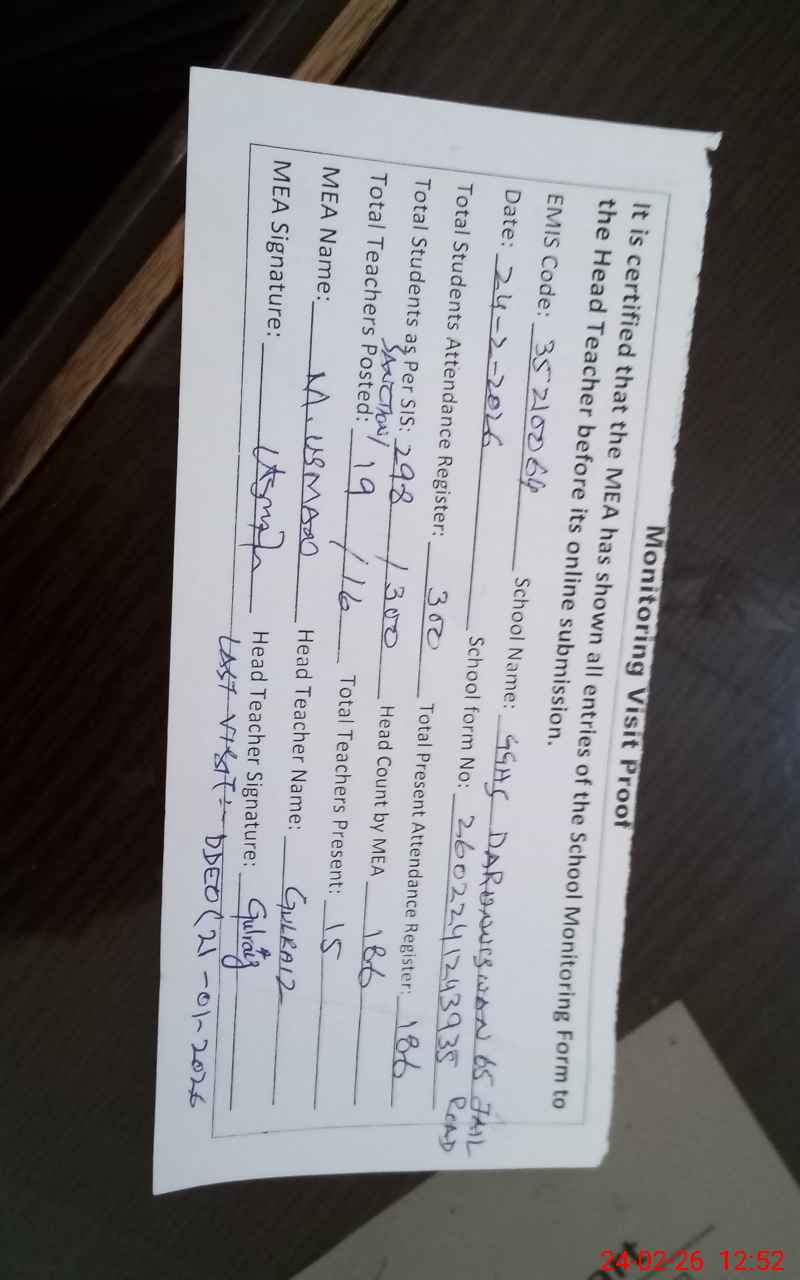 Monitoring Visit Proof
It is certified that the MEA has shown all entries of the School Monitoring Form to
the Head Teacher before its online submission.
EMIS Code: 35210064 School Name: GGHS 65 JAIL ROAD
Date: 24-2-2026 School form No: 260224124393S
Total Students Attendance Register: 300 Total Present Attendance Register: 186
Total Students as Per SIS: 298 / 300 Head Count by MEA 186
Total Teachers Posted: 19 / 16 Total Teachers Present: 15
MEA Name: M. USMAN Head Teacher Name: GULRAIZ
MEA Signature: Head Teacher Signature: Gulraiz
LAST VISIT:- DDEO (21-01-2026
24-02-26 12:52